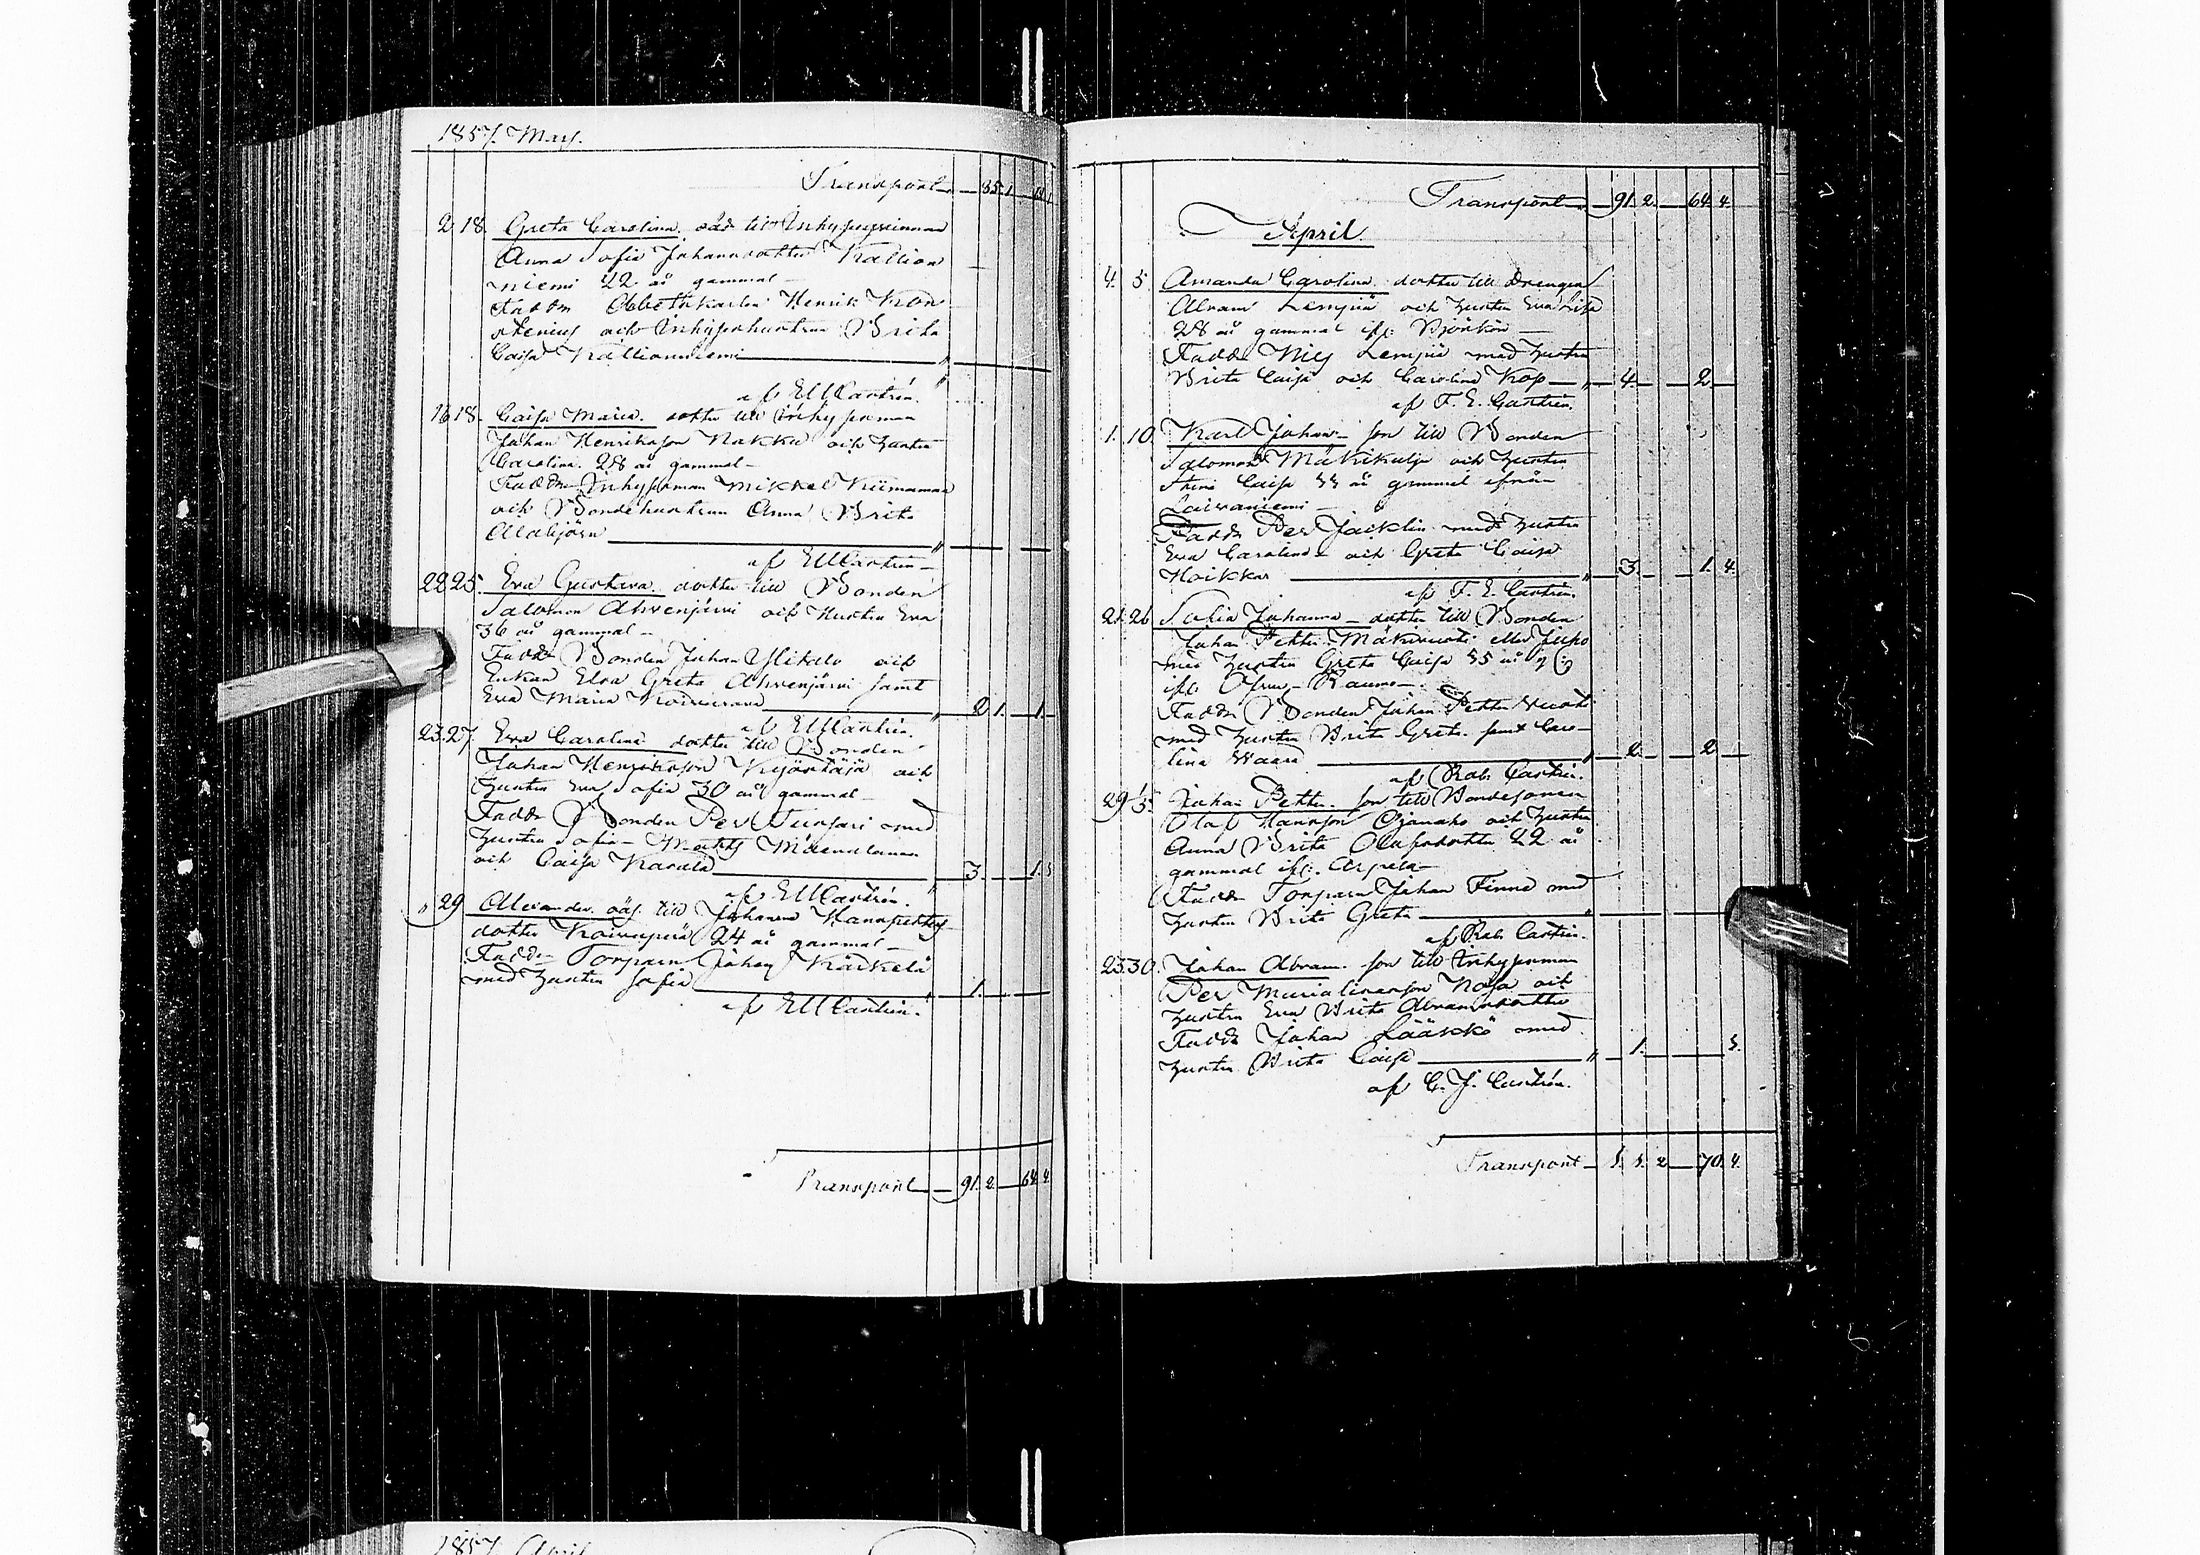 1857. Mars.
Transport 85. 1.
2 18. Greta Carolina. oäd till Inhyspiginnan
Anna Sofia Johansdotter Kallion
niemi 22 år gammal
Faddr Henrik Kron
stenius och Inhyseshustrun Brita
Caisa Kallioniemi "
af EMCastrén.
16 18. Caisa Maria. dotter till Inhysesman
Johan Henriksson Nakku och hustru
Carolina. 28 år gammal
Faddr Inhysesman Mikkel Kiimamaa
och Bondehustrun Anna Brita
Alabjörn "
af EMCastrén
22 25. Eva Gustava. dotter till Bonden
Salomon Ahvenjärvi och Hustru Eva
36 år gammal
Faddr Bonden Johan Ylikalo och
Enkan Elsa Greta Ahvenjärvi samt
Eva Maria Koivuranta " 2 1. 1.
af EMCastrén.
23. 27. Eva Carolina dotter till Bonden
Johan Henriksson och
hustru Eva Sofia 30 år gammal
Faddr Bonden Per med
hustru Sofia Matts Mäenalanen
och Caisa Karala " 3. 1. 5
af EMCastrén.
" 29 Alexander. oäs. till Johanna Hanspetters
dotter Koivuperä 24 år gammal
Faddr Torparn Johan Käikelä
med hustru Sofia " 1.
af EMCastrén.
Transport 91. 2. 64. 4.
Transport 91. 2. 64. 4.
April.
4. 5. Amanda Carolina. dotter till Drengen
Abram Lempiä och hustru Eva Lisa
28 år gammal ifr: Björkön
Faddr Nils Lempiä med hustru
Brita Caisa och Carolina Kop " 4. 2.
af F. E. Castrén.
1. 10. Karl Johan son till Bonden
Salomon Mäkikulje och hustru
Stina Caisa 33 år gammal ifrån
Laivaniemi
Faddr Per Jacklin med hustru
Eva Carolina och Greta Caisa
Hoikkar " 3. 1. 4.
af F. E. Castrén.
21. 26. Sofia Johanna dotter till Bonden
Johan Petter eller
med hustru Greta Caisa 35 år
ifr: Öfver Raumo
Faddr Bonden Johan Petter
med hustru Brita Greta samt Caro
lina Waara " 2. 2
af Rob. Castrén.
29 3/5. Johan Petter. son till Bondesonen
Olof Hansson Ojanaho och hustru
Anna Brita Olofsdotter 22 år
gammal ifr: Arpela
Faddr Torparn Johan Finne med
hustru Brita Greta "
af Rob. Castrén.
23. 30. Johan Abram. son till Inhysesman
Per och
hustru Eva Brita Abramsdotter
Faddr Johan Lääkkö med
hustru Brita Caisa " 1. 5.
af C. J. Castrén.
Transport 1. 1. 2 70. 4.
1857. April